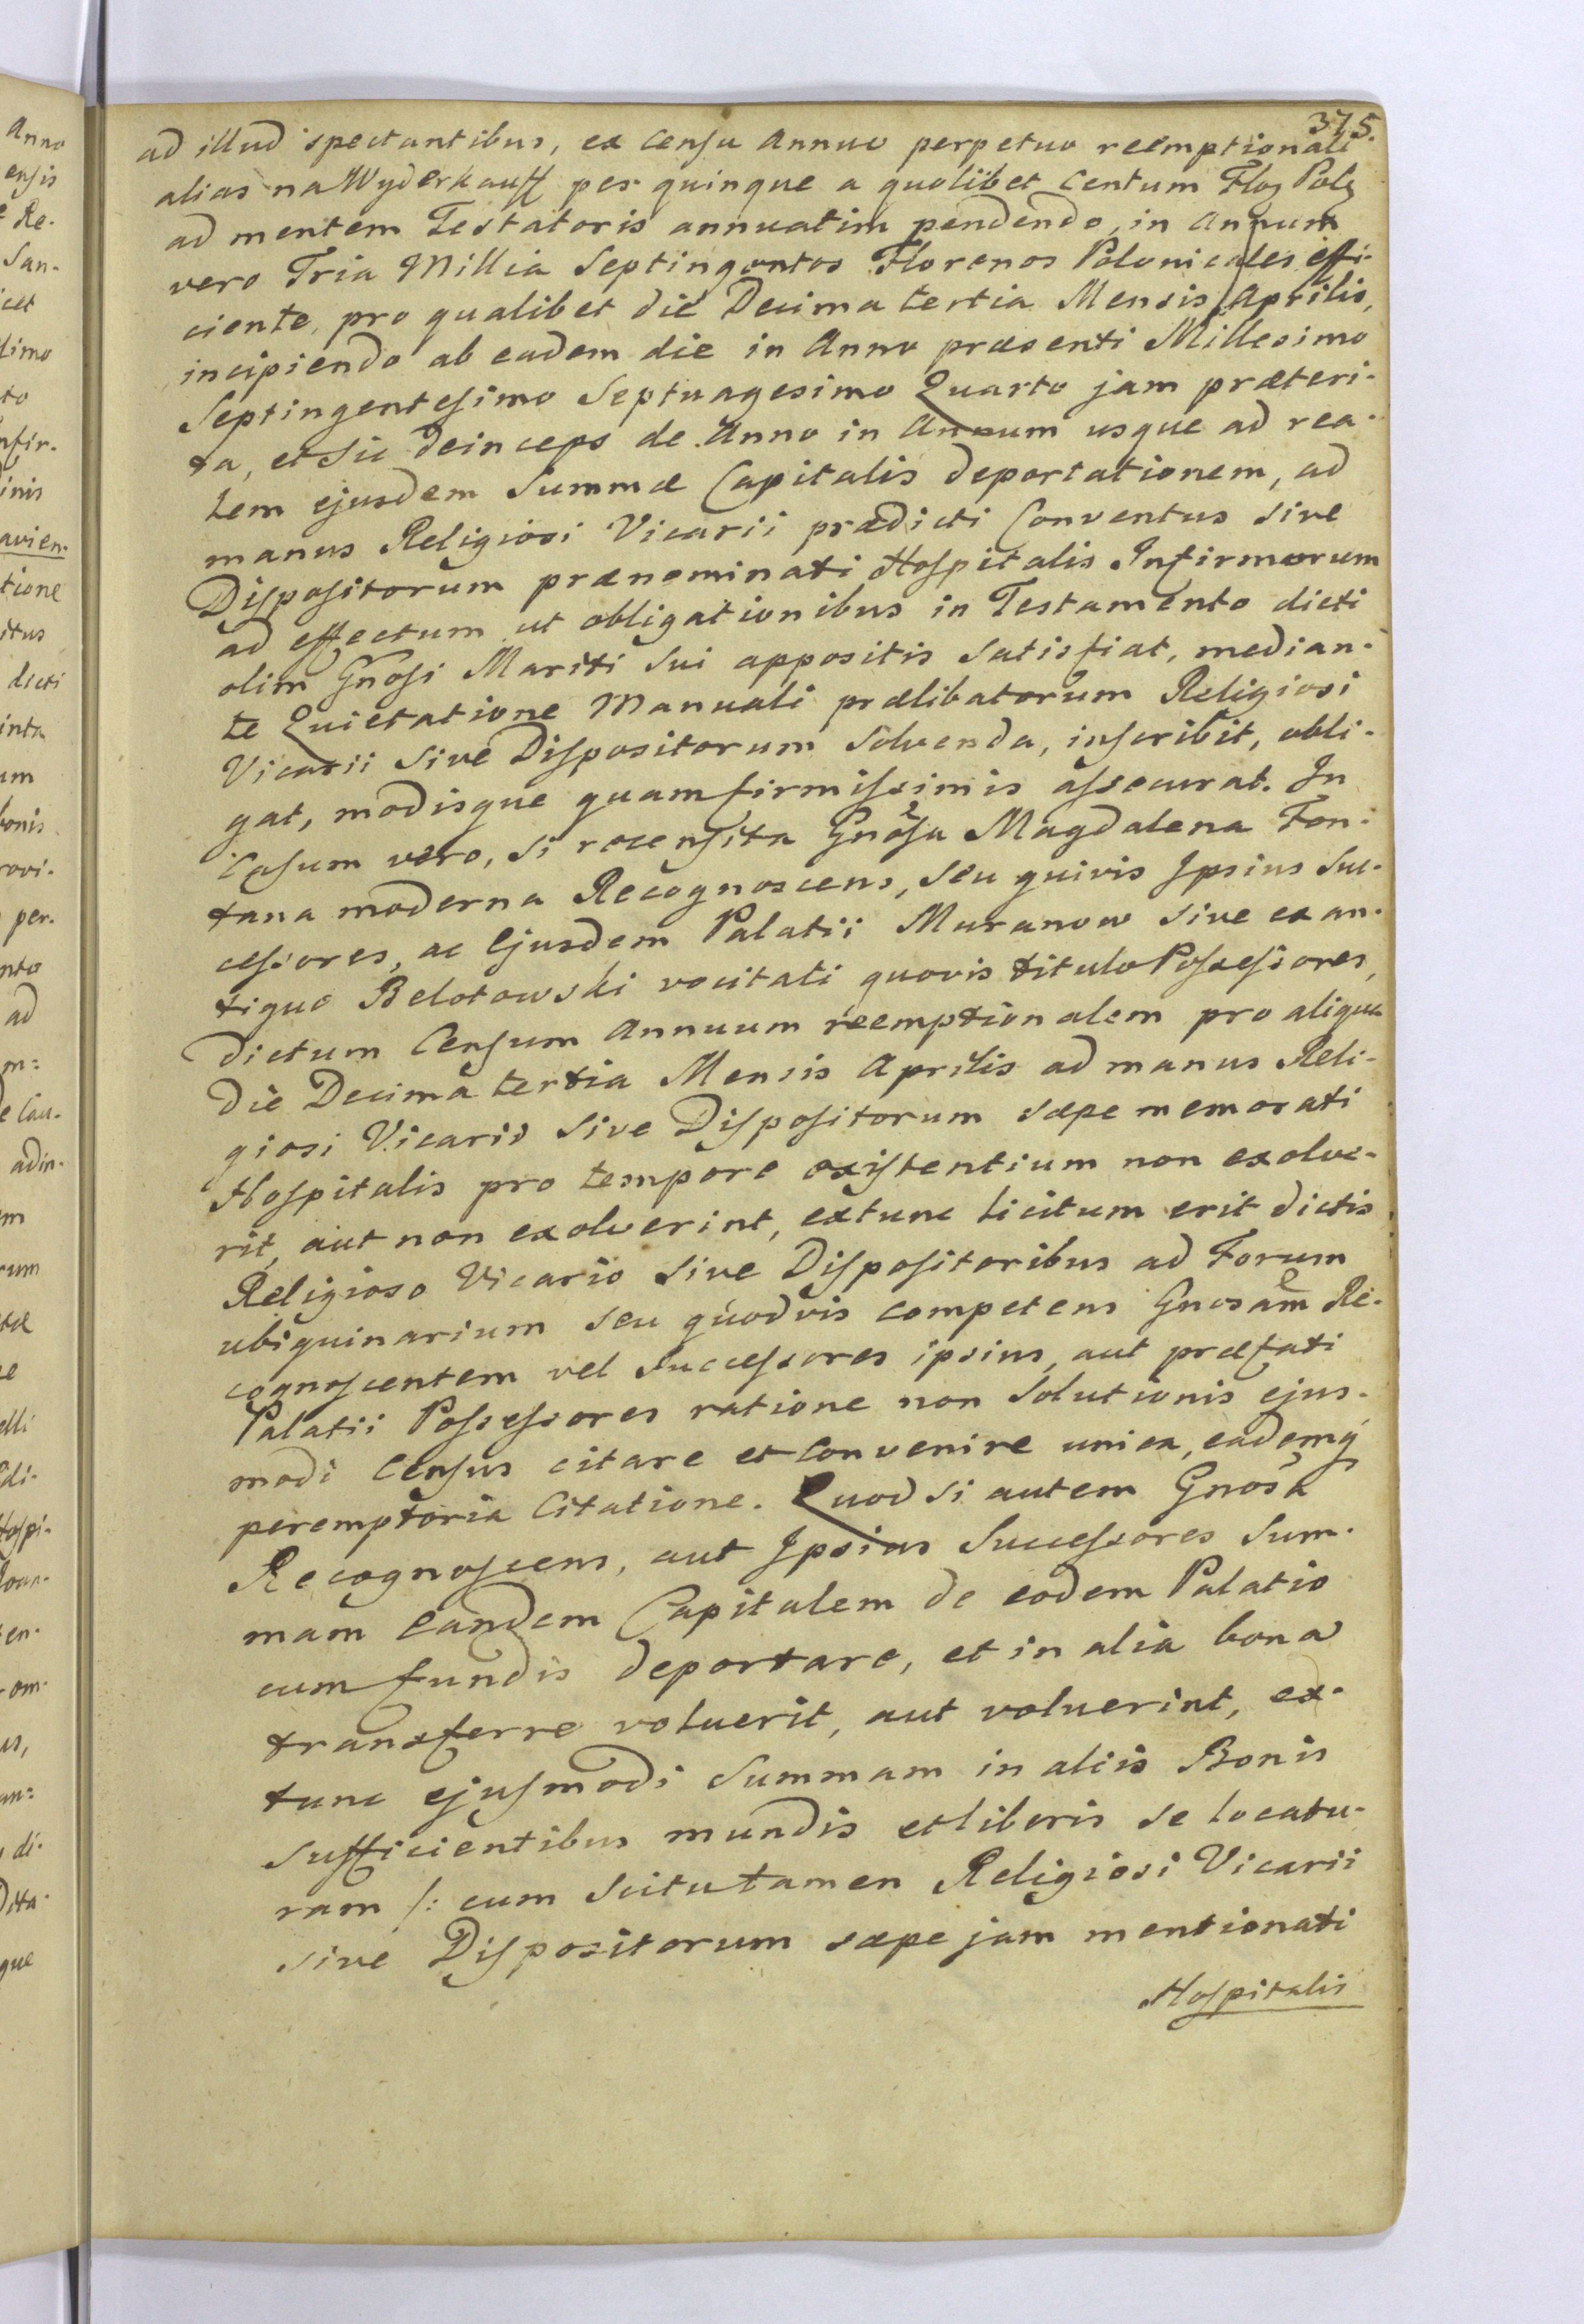 375.
ad illud spectantibus, ex Censu Annuo perpetuo reemptionali
alias na Wyderkauff per quinque a quolibet Centum Flor Pol
ad mentem Testatoris annuatim pendendo, in Annum
vero Tria Millia Septingentos Florenos Polonicales effi-
ciente, pro qualibet die Decima tertia Mensis Aprilis,
incipiendo ab eadem die in Anno præsenti Millesimo
Septingentesimo Septuagesimo Quarto jam præteri-
ta, et sic deinceps de Anno in Annum usque ad rea-
lem ejusdem Summæ Capitalis deportationem, ad
manus Religiosi Vicarii prædicti Conventus sive
Dispositorum prænominati Hospitalis Infirmorum
ad effectum ut obligationibus in Testamento dicti
olim Gnosi Mariti sui appositis satisfiat, median-
te Quietatione Manuali prælibatorum Religiosi
Vicarii sive Dispositorum solvenda, inscribit, obli-
gat, modisque quamfirmissimis assecurat. In
Casum vero, si recensita Gnosa Magdalena Fon-
tana moderna Recognoscens, seu quivis Ipsius Suc-
cessores, ac Ejusdem Palatii Muranow sive ex an-
tiquo Belotowski vocitati quovis titulo Possessores,
dictum Censum Annuum reemptionalem pro aliqua
die Decima tertia Mensis Aprilis ad manus Reli-
giosi Vicarii sive Dispositorum sæpe memorati
Hospitalis pro tempore existentium non exolve-
rit, aut non exolverint, extunc licitum erit dictis
Religioso Vicario sive Dispositoribus ad Forum
ubiquinarium seu quodvis competens Gnosam Re-
cognoscentem vel Successores ipsius, aut præfati
Palatii Possessores ratione non solutionis ejus-
modi Census citare et convenire unica, eademq
peremptoria Citatione. Quod si autem Gnosa
Recognoscens, aut Ipsius Successores Sum-
mam eandem Capitalem de eodem Palatio
cum fundis deportare, et in alia bona
transferre voluerit, aut voluerint, ex-
tunc ejusmodi Summam in aliis Bonis
sufficientibus mundis et liberis se locatu-
ram /: cum scitu tamen Religiosi Vicarii
sive Dispositorum sæpe jam mentionati
Hospitalis